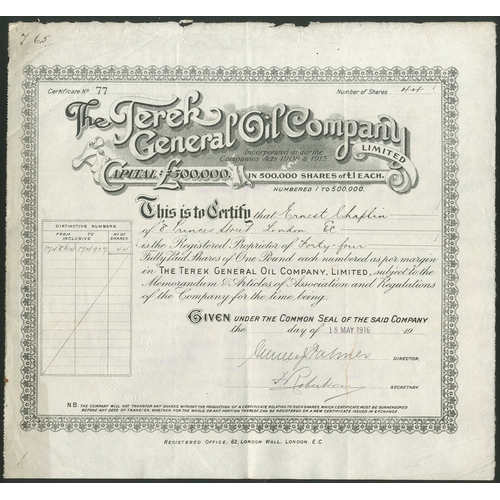 7 65
Certificate No 77
Number of Shares 44
The Terek
General Oil Company
LIMITED
Incorporated under the
Companies Acts 1908 & 1913.
CAPITAL £500,000.
IN 500,000 SHARES OF £1 EACH.
NUMBERED 1 TO 500,000.
This is to Certify that Ernest Chaplin
of 8 Princes Street London EC
is the Registered Proprietor of Forty-four
Fully Paid Shares of One Pound each numbered as per margin
in THE TEREK GENERAL OIL COMPANY, LIMITED, subject to the
Memorandum & Articles of Association and Regulations
of the Company for the time being.
DISTINCTIVE NUMBERS
FROM TO
INCLUSIVE
No OF
SHARES
44
GIVEN UNDER THE COMMON SEAL OF THE SAID COMPANY
the day of 18 MAY 1916 19
DIRECTOR
Robertson
SECRETARY.
N.B. THE COMPANY WILL NOT TRANSFER ANY SHARES WITHOUT THE PRODUCTION OF A CERTIFICATE RELATING TO SUCH SHARES, WHICH CERTIFICATE MUST BE SURRENDERED
BEFORE ANY DEED OF TRANSFER, WHETHER FOR THE WHOLE OR ANY PORTION THEREOF, CAN BE REGISTERED OR A NEW CERTIFICATE ISSUED IN EXCHANGE.
REGISTERED OFFICE, 62, LONDON WALL, LONDON, E.C.